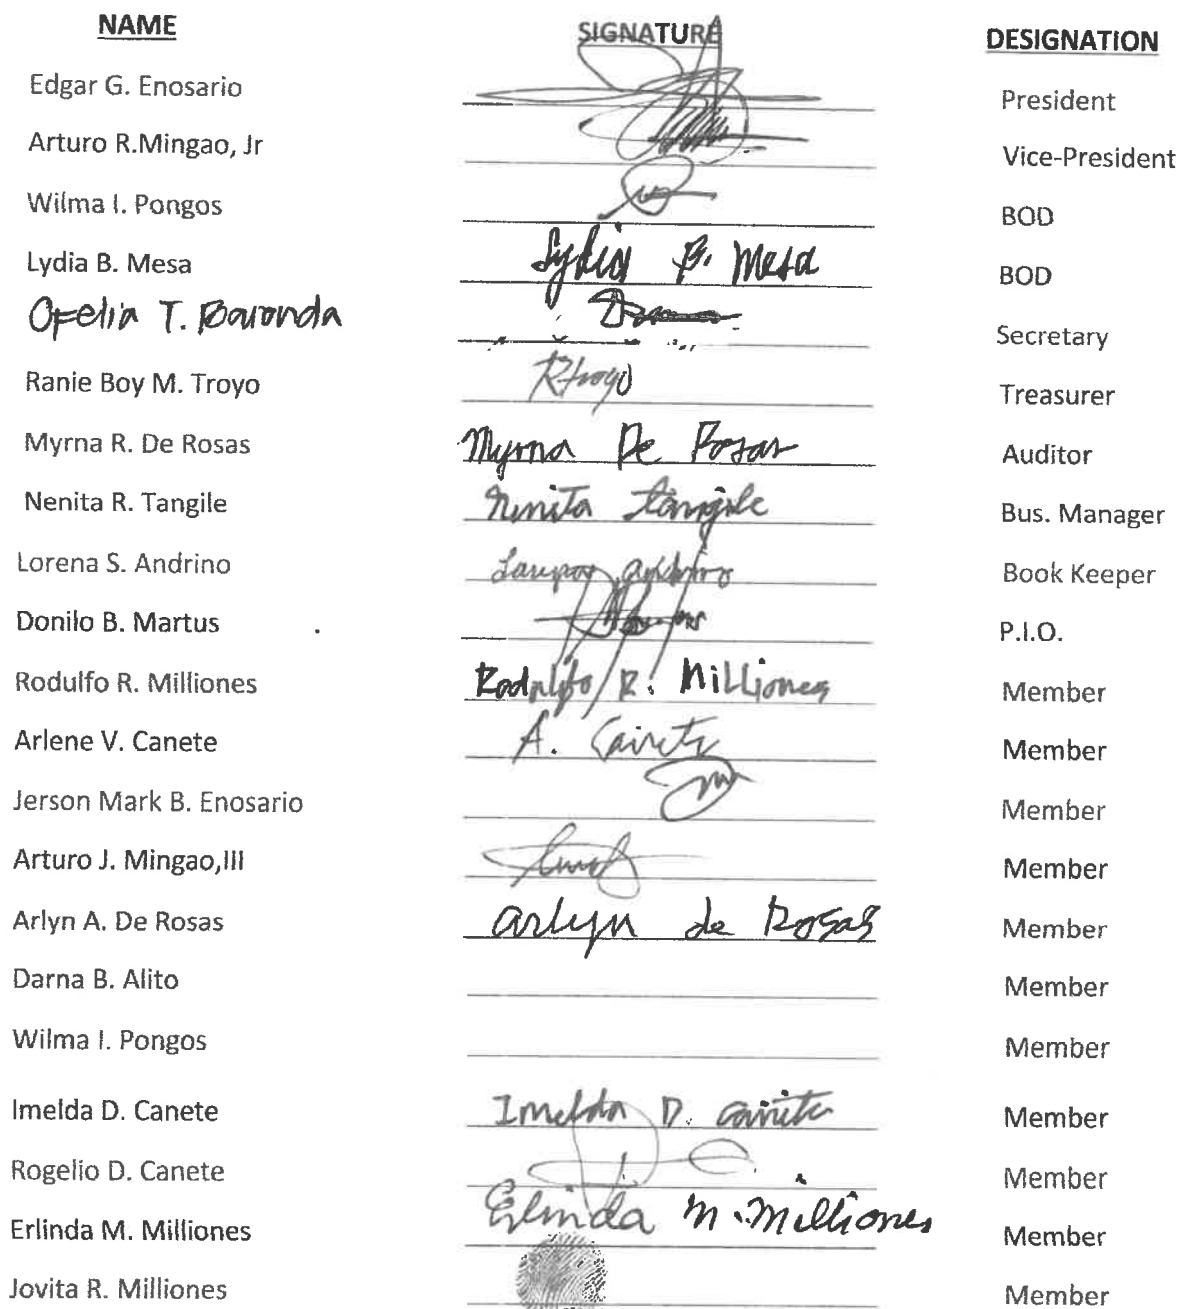 NAME SIGNATURE DESIGNATION
Edgar G. Enosario President
Arturo R.Mingao, Jr Vice-President
Wilma I. Pongos BOD
Lydia B. Mesa Lydia B. Mesa BOD
Ofelia T. Baronda Secretary
Ranie Boy M. Troyo RTroyo Treasurer
Myrna R. De Rosas Myrna De Rosas Auditor
Nenita R. Tangile Nenita Tangile Bus. Manager
Lorena S. Andrino Book Keeper
Donilo B. Martus P.I.O.
Rodulfo R. Milliones Rodulfo R. Milliones Member
Arlene V. Canete A. Cañete Member
Jerson Mark B. Enosario Member
Arturo J. Mingao,III Member
Arlyn A. De Rosas arlyn de Rosas Member
Darna B. Alito Member
Wilma I. Pongos Member
Imelda D. Canete Imelda D. Cañete Member
Rogelio D. Canete Member
Erlinda M. Milliones Erlinda M. Milliones Member
Jovita R. Milliones Member